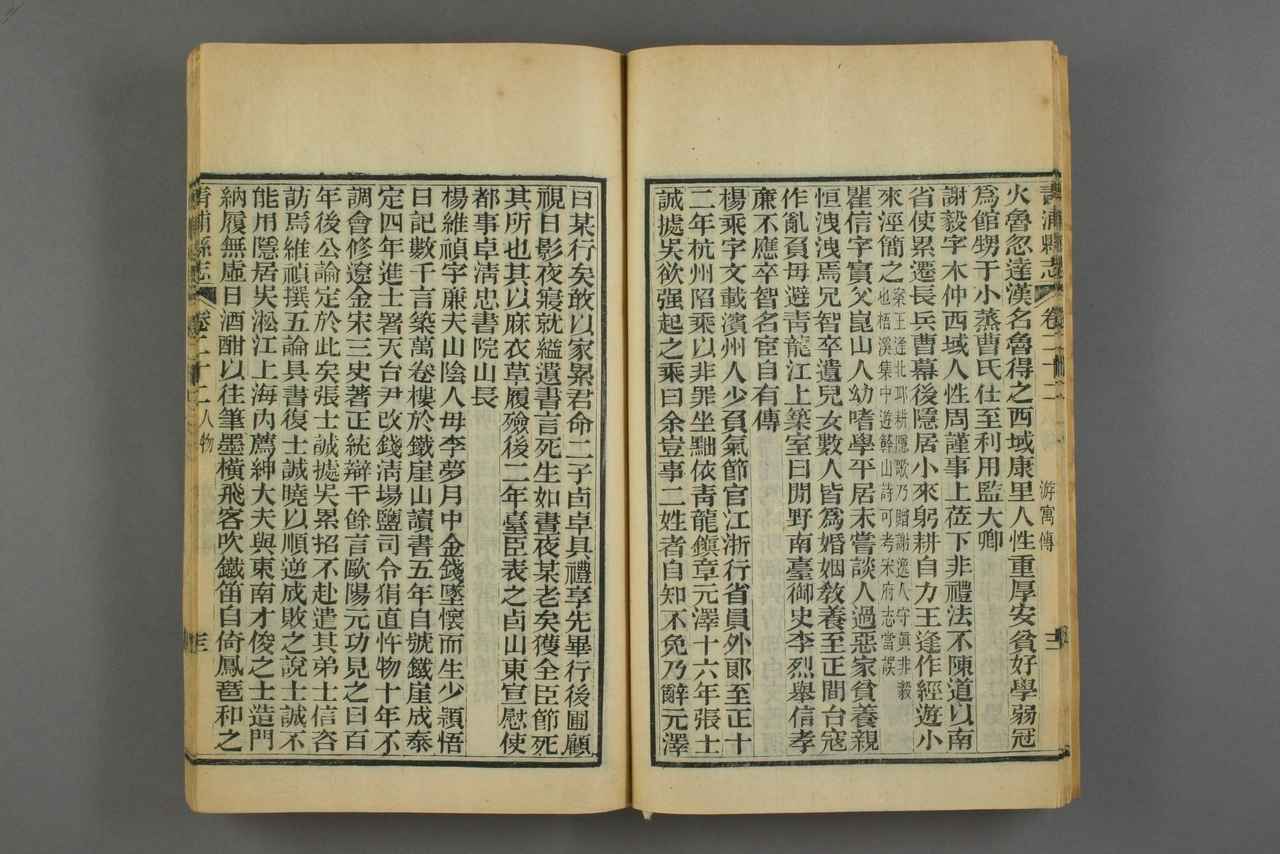 青浦縣志 卷二十二 游寓傳
火魯忽達漢名魯得之西域康里人性重厚安貧好學弱冠
爲館甥于小蒸曹氏仕至利用監大卿
謝毅字木仲西域人性周謹事上莅下非禮法不陳道以南
省使累遷長兵曹幕後隱居小來躬耕自力王逢作經遊小
來涇簡之
案王逢北邙耕隱歌乃贈謝逸人守眞非毅
也梧溪集中遊榦山詩可考宋府志當誤
瞿信字實父崑山人幼嗜學平居未嘗談人過惡家貧養親
恒洩洩焉兄智卒遺兒女數人皆爲婚姻敎養至正間台寇
作亂負母避靑龍江上築室曰閒野南臺御史李烈舉信孝
廉不應卒智名宦自有傳
楊乘字文載濱州人少負氣節官江浙行省員外郎至正十
二年杭州陷乘以非罪坐黜依靑龍鎭章元澤十六年張士
誠據吳欲强起之乘曰余豈事二姓者自知不免乃辭元澤
曰某行矣敢以家累君命二子卣卓具禮享先畢行後圃顧
視日影夜寢就縊遺書言死生如晝夜某老矣獲全臣節死
其所也其以麻衣草履殮後二年臺臣表之卣山東宣慰使
都事卓淸忠書院山長
楊維禎字亷夫山陰人母李夢月中金錢墜懷而生少穎悟
日記數千言築萬卷樓於鐵崖山讀書五年自號鐵崖成泰
定四年進士署天台尹改錢淸場鹽司令狷直忤物十年不
調會修遼金宋三史著正統辯千餘言歐陽元功見之曰百
年後公論定於此矣張士誠據吳累招不赴遣其弟士信咨
訪焉維禎撰五論具書復士誠曉以順逆成敗之說士誠不
能用隱居吳淞江上海內薦紳大夫與東南才俊之士造門
納履無虛日酒酣以往筆墨橫飛客吹鐵笛自倚鳳琶和之
青浦縣志 卷二十二 人物